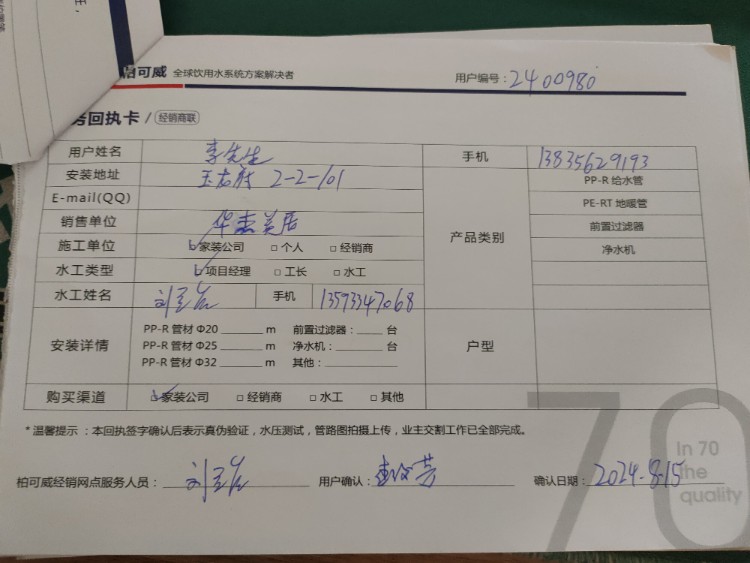 柏可威 全球饮用水系统方案解决者 用户编号：2400980
务回执卡 / 经销商联
用户姓名 李先生 手机 13835629193
安装地址 2-2-101 产品类别 PP-R 给水管
E-mail(QQ) PE-RT 地暖管
销售单位 华杰美居 前置过滤器
施工单位 家装公司 个人 经销商 净水机
水工类型 项目经理 工长 水工
水工姓名 手机 13593347068
安装详情 PP-R 管材 Φ20 m 前置过滤器： 台 户型
PP-R 管材 Φ25 m 净水机： 台
PP-R 管材 Φ32 m 其他：
购买渠道 家装公司 经销商 水工 其他
*温馨提示：本回执签字确认后表示真伪验证，水压测试，管路图拍摄上传，业主交割工作已全部完成。
70
In 70
the
quality
柏可威经销网点服务人员： 用户确认： 确认日期：2024.8.15